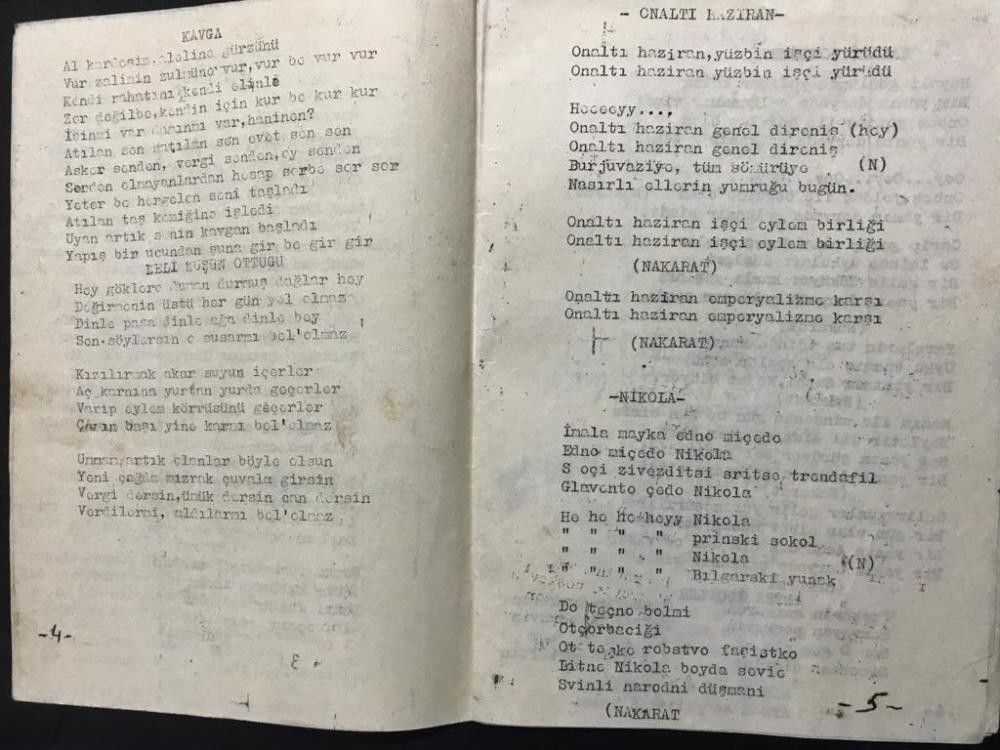 KAVGA
Al kardeşim eline gürzünü
Vur zalimin zulmüne vur, vur be vur vur
Kendi rahatını kendi elinle
Zor değilbe, kendin için kur be kur kur
İşinmi var mı var, haninen?
Atılan sen satılan sen evet sen sen
Asker senden, vergi senden, oy senden
Senden olmayanlardan hesap sorbe sor sor
Yeter be hergelen seni taşladı
Atılan taş kemiğine işledi
Uyan artık senin kavgan başladı
Yapış bir ucundan şuna gir be gir gir
DELİ KUŞUN ÖTTÜĞÜ
Hey göklere duman durmuş dağlar hey
Değirmenin üstü her gün yel olmaz
Dinle paşa dinle ağa dinle bey
Sen söylersin o susarmı bel'olmaz
Kızılırmak akar suyun içerler
Aç karnına yurtan yurda geçerler
Varıp eylem körrüsünü geçerler
Çarın başı yine karmı bel'olmaz
Umman artık olanlar böyle olsun
Yeni çağda mızrak çuvala girsin
Vergi dersin, ümük dersin can dersin
Verdilermi, aldılarmı bel'olmaz
-4-
- ONALTI HAZIRAN-
Onaltı haziran,yüzbin işçi yürüdü
Onaltı haziran yüzbin işçi yürüdü
Heeeeyy....,
Onaltı haziran genel direniş (hey)
Onaltı haziran genel direniş
Burjuvaziye, tüm sömürüye (N)
Nasırlı ellerin yumruğu bugün.
Onaltı haziran işçi eylem birliği
Onaltı haziran işçi eylem birliği
(NAKARAT)
Onaltı haziran emperyalizme karşı
Onaltı haziran emperyalizme karşı
(NAKARAT)
-NİKOLA-
İmala mayka edno miçedo
Edno miçedo Nikola
S oçi zivezditsi sritse trendafil
Glavento çedo Nikola
He he he heyy Nikola
" " " " prinski sokol
" " " " Nikola (N)
" " " " Bılgarski yunak
Do toçno bolmi
Otçorbaciği
Ot tejko robstvo façistko
Bitne Nikola boyda sevic
Svinli narodni düşmani
(NAKARAT
-5-